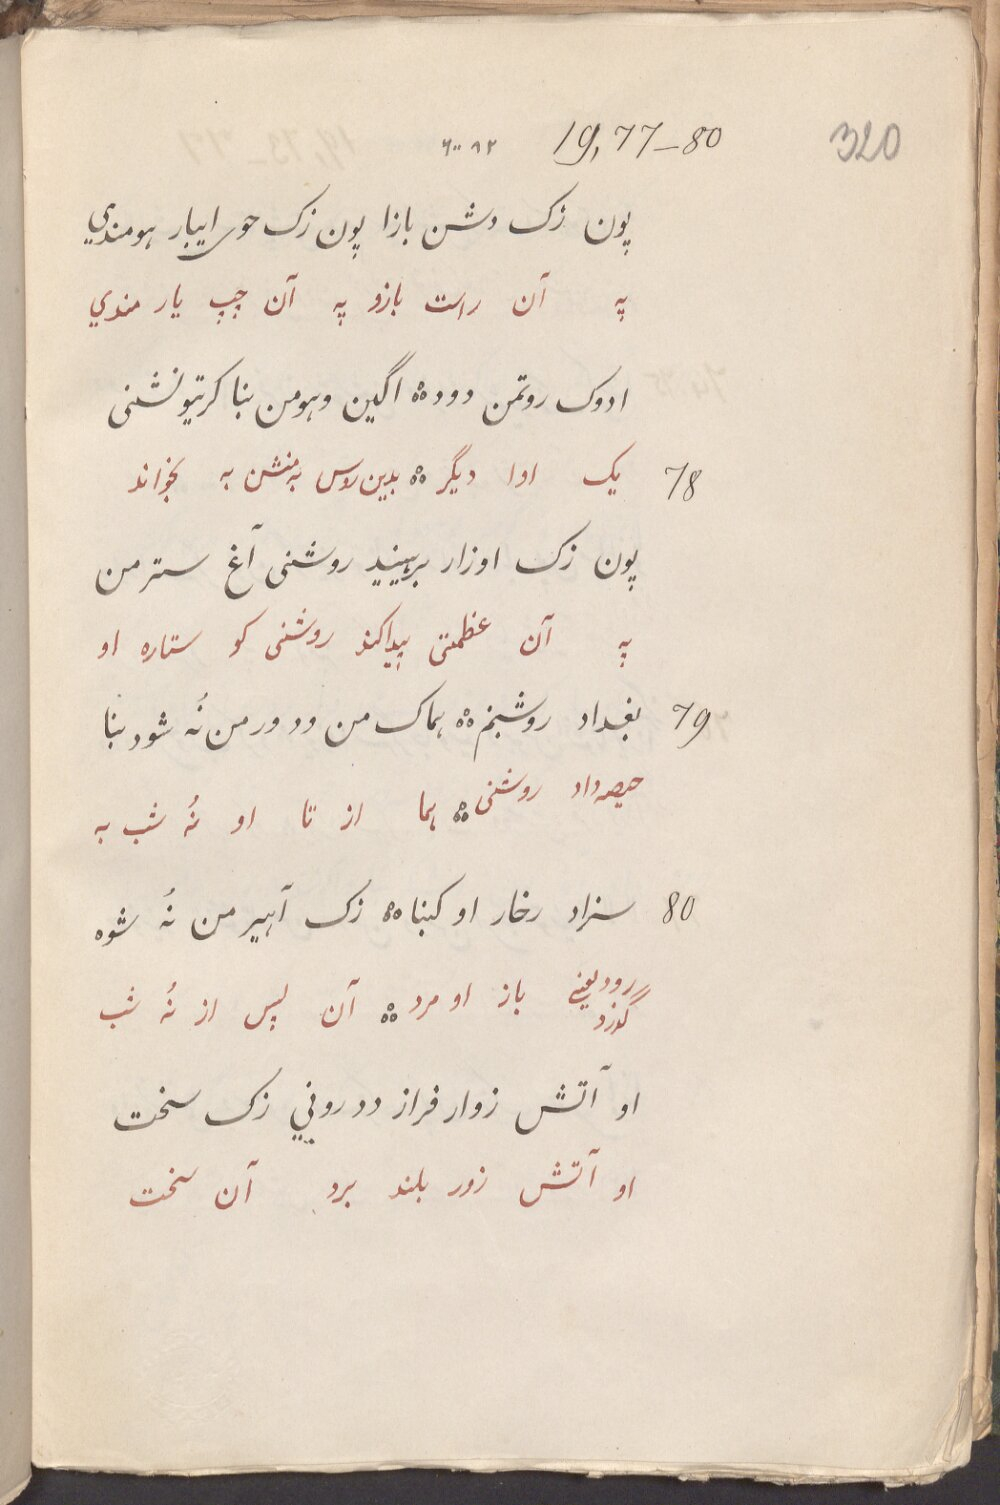 320
19,77–80
پون زک دشن بازا پون زک حوی ایبار هومندي
په آن راست بازو په آن چپ یار مندي
ادوک روتمن دود ஃ اگین وهومن بنا کرتیونشنی
78 یک اوا دیگر ஃ بدین روس به منشن به بخواند
پون زک اوزار برهینید روشنی آغ سترمن
په آن عظمتی پیداکند روشنی کو ستاره او
79 بغداد روشنم ஃ هماک من دد ورمن نُه شود بنا
حیصه داد روشنی ஃ هما از تا او نُه شب به
80 سزاد رخار او کبنا ஃ زک آهیر من نُه شوه
رود یعنے گوزد باز او مرد ஃ آن پس از نُه شب
او آتش زوار فراز ددروني زک سخت
او آتش زور بلند برد آن سخت